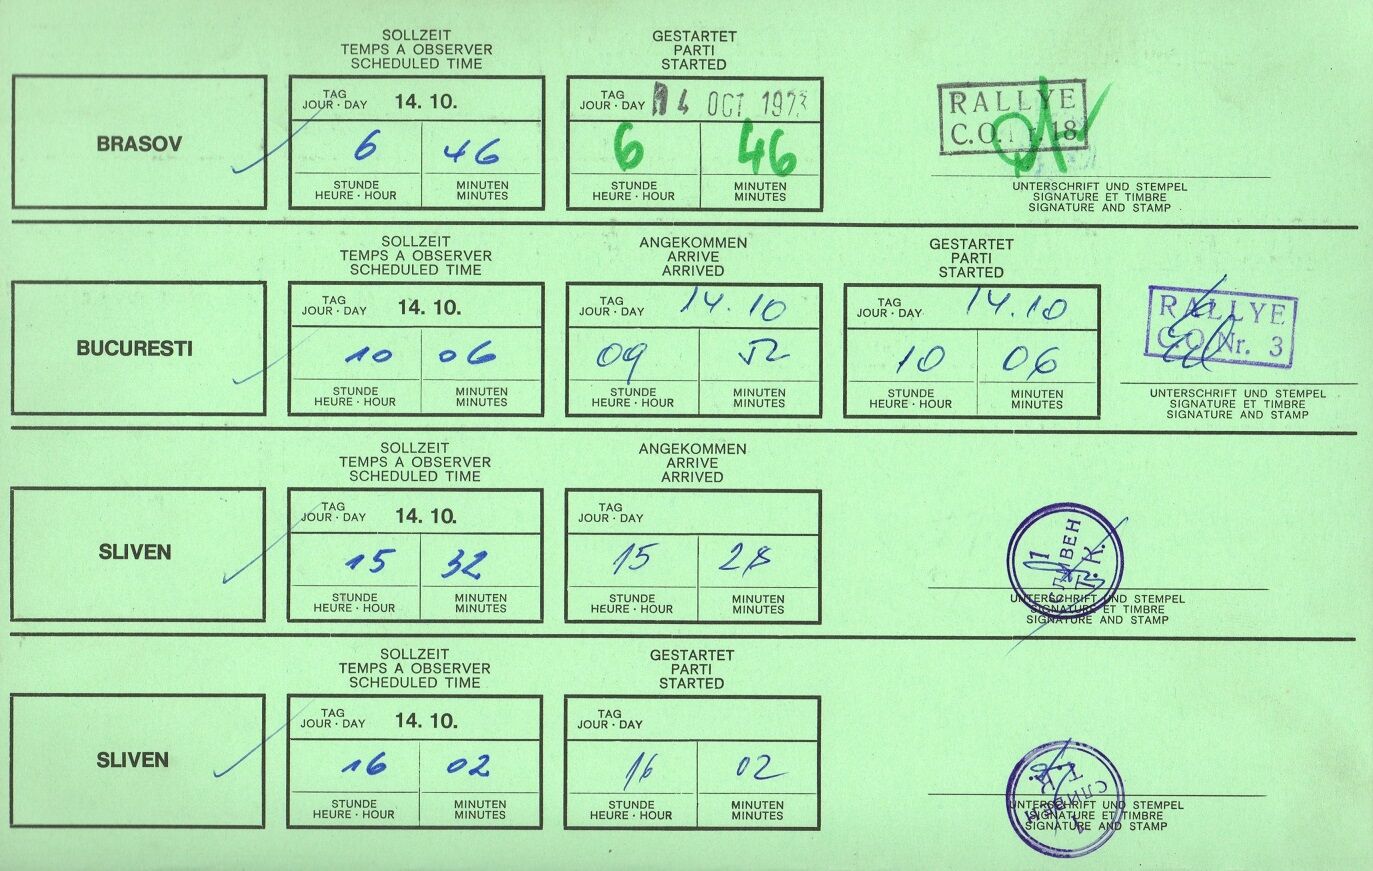 SOLLZEIT
TEMPS A OBSERVER
SCHEDULED TIME
GESTARTET
PARTI
STARTED
BRASOV
TAG
JOUR · DAY 14. 10.
6 46
STUNDE MINUTEN
HEURE · HOUR MINUTES
TAG
JOUR · DAY 14 OCT 1973
6 46
STUNDE MINUTEN
HEURE · HOUR MINUTES
RALLYE
C.O. Nr. 18
UNTERSCHRIFT UND STEMPEL
SIGNATURE ET TIMBRE
SIGNATURE AND STAMP
SOLLZEIT
TEMPS A OBSERVER
SCHEDULED TIME
ANGEKOMMEN
ARRIVE
ARRIVED
GESTARTET
PARTI
STARTED
BUCURESTI
TAG
JOUR · DAY 14. 10.
10 06
STUNDE MINUTEN
HEURE · HOUR MINUTES
TAG 14.10
JOUR · DAY
09 52
STUNDE MINUTEN
HEURE · HOUR MINUTES
TAG 14.10
JOUR · DAY
10 06
STUNDE MINUTEN
HEURE · HOUR MINUTES
RALLYE
C.O. Nr. 3
UNTERSCHRIFT UND STEMPEL
SIGNATURE ET TIMBRE
SIGNATURE AND STAMP
SOLLZEIT
TEMPS A OBSERVER
SCHEDULED TIME
ANGEKOMMEN
ARRIVE
ARRIVED
SLIVEN
TAG
JOUR · DAY 14. 10.
15 32
STUNDE MINUTEN
HEURE · HOUR MINUTES
TAG
JOUR · DAY
15 28
STUNDE MINUTEN
HEURE · HOUR MINUTES
1
СЛИВЕН
Т. К.
UNTERSCHRIFT UND STEMPEL
SIGNATURE ET TIMBRE
SIGNATURE AND STAMP
SOLLZEIT
TEMPS A OBSERVER
SCHEDULED TIME
GESTARTET
PARTI
STARTED
SLIVEN
TAG
JOUR · DAY 14. 10.
16 02
STUNDE MINUTEN
HEURE · HOUR MINUTES
TAG
JOUR · DAY
16 02
STUNDE MINUTEN
HEURE · HOUR MINUTES
Т. К.
СЛИВЕН
1
UNTERSCHRIFT UND STEMPEL
SIGNATURE ET TIMBRE
SIGNATURE AND STAMP